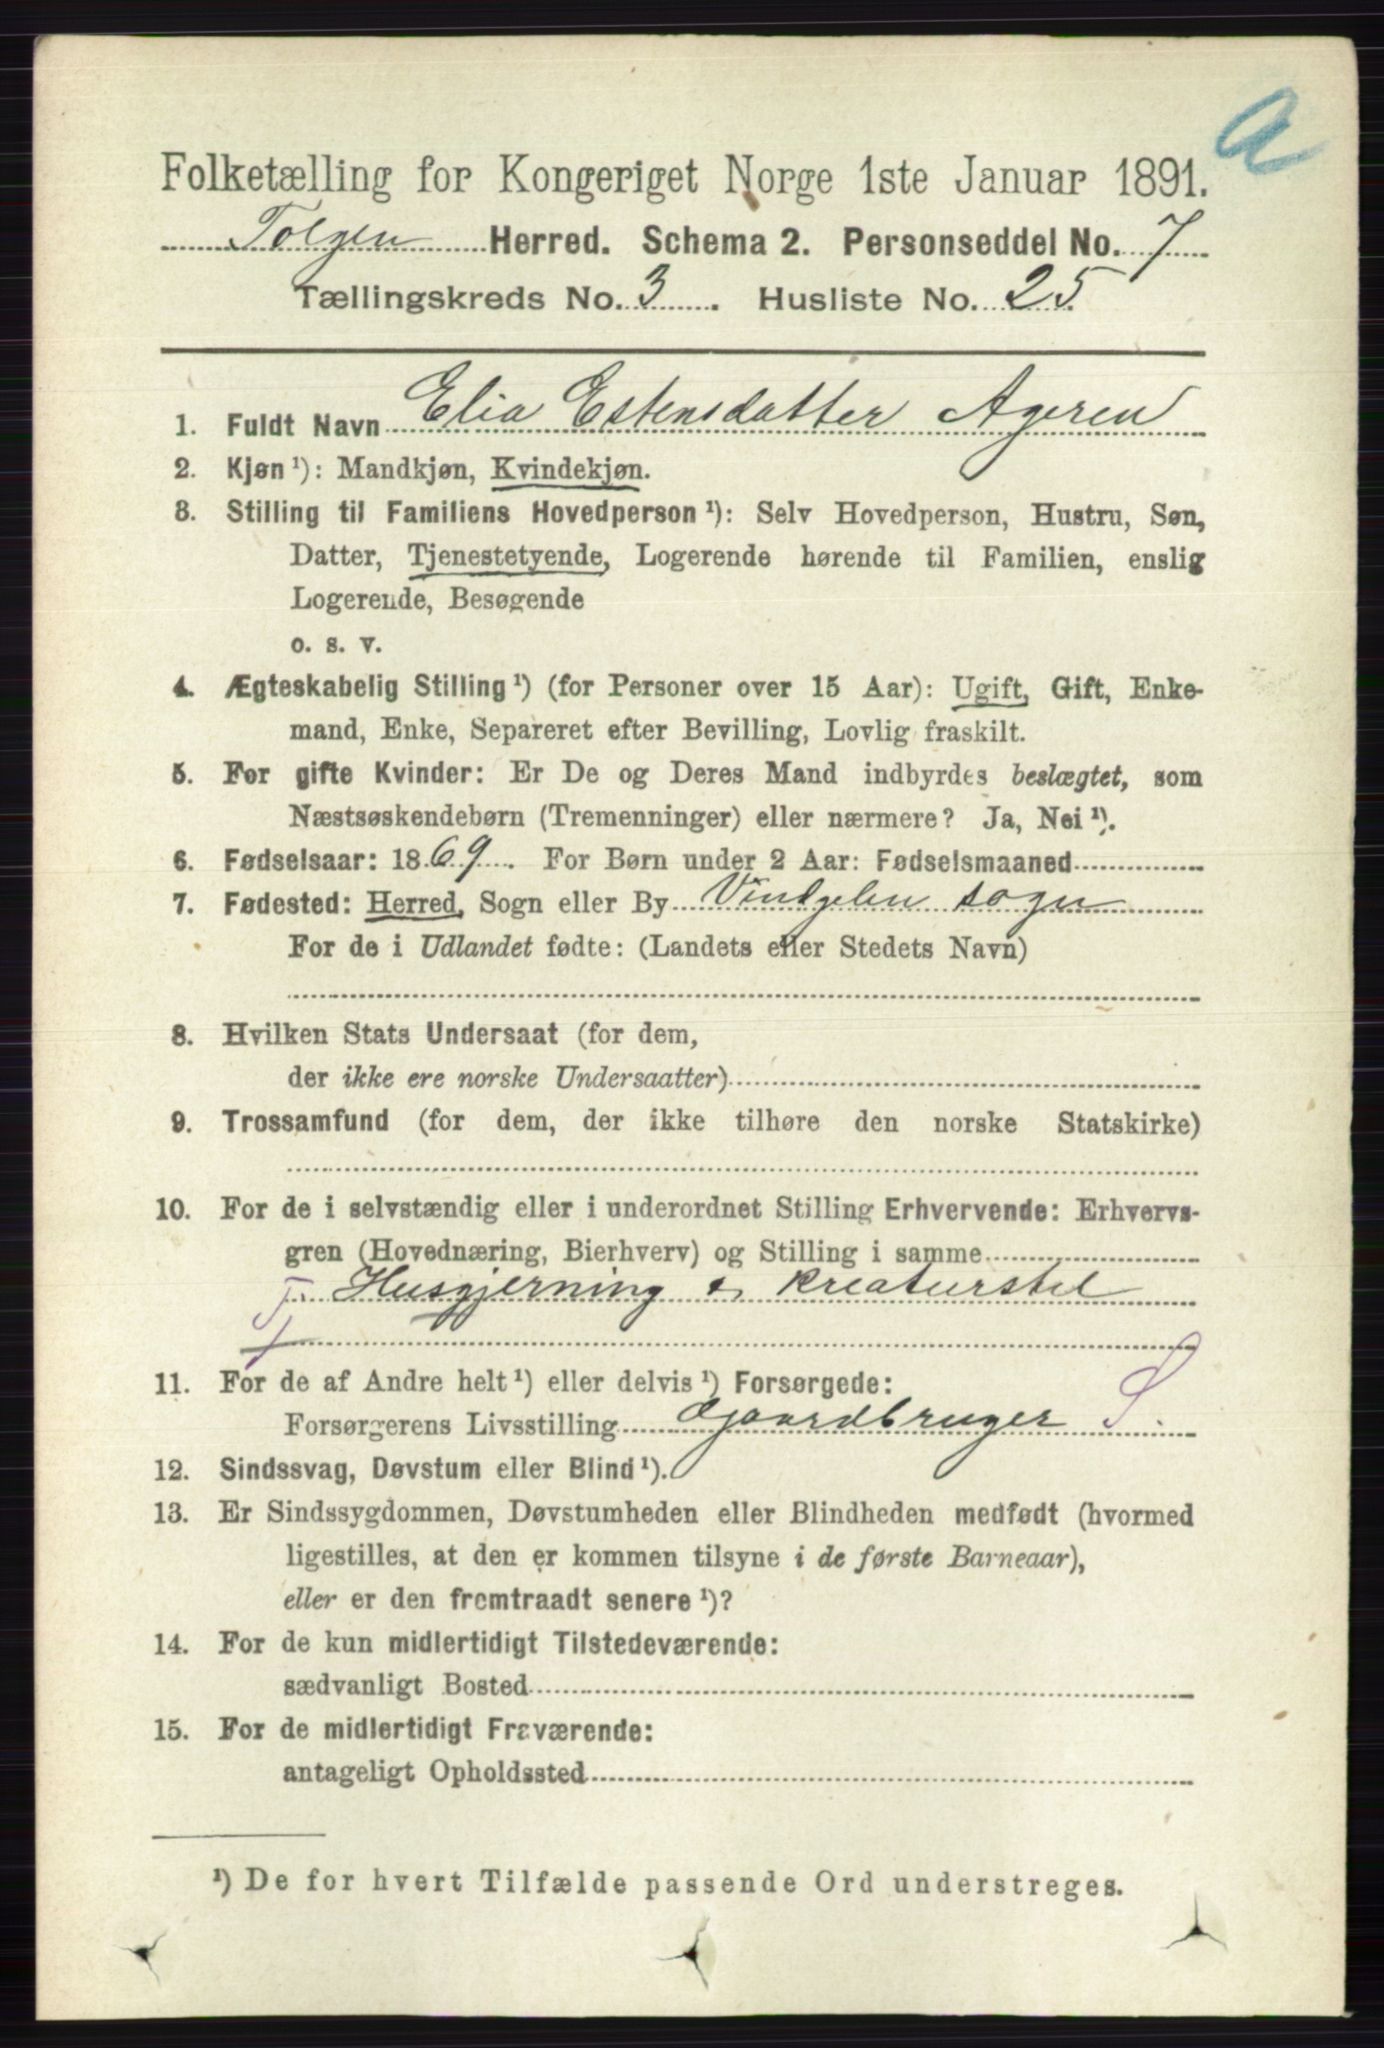 a
Folketælling for Kongeriget Norge 1ste Januar 1891.
Tolgen Herred. Schema 2. Personseddel No. 7
Tællingskreds No. 3. Husliste No. 25.
1. Fuldt Navn Elia Estensdatter Ageren
2. Kjøn ¹): Mandkjøn, Kvindekjøn.
3. Stilling til Familiens Hovedperson ¹): Selv Hovedperson, Hustru, Søn,
Datter, Tjenestetyende, Logerende hørende til Familien, enslig
Logerende, Besøgende
o. s. v.
4. Ægteskabelig Stilling ¹) (for Personer over 15 Aar): Ugift, Gift, Enke-
mand, Enke, Separeret efter Bevilling, Lovlig fraskilt.
5. For gifte Kvinder: Er De og Deres Mand indbyrdes beslægtet, som
Næstsøskendebørn (Tremenninger) eller nærmere? Ja, Nei ¹).
6. Fødselsaar: 1869. For Børn under 2 Aar: Fødselsmaaned
7. Fødested: Herred, Sogn eller By Vindgelen sogn
For de i Udlandet fødte: (Landets eller Stedets Navn)
8. Hvilken Stats Undersaat (for dem,
der ikke ere norske Undersaatter)
9. Trossamfund (for dem, der ikke tilhøre den norske Statskirke)
10. For de i selvstændig eller i underordnet Stilling Erhvervende: Erhvervs-
gren (Hovednæring, Bierhverv) og Stilling i samme
Husgjerning & kreaturstel
11. For de af Andre helt ¹) eller delvis ¹) Forsørgede:
Forsørgerens Livsstilling Gaardbruger S.
12. Sindssvag, Døvstum eller Blind ¹).
13. Er Sindssygdommen, Døvstumheden eller Blindheden medfødt (hvormed
ligestilles, at den er kommen tilsyne i de første Barneaar),
eller er den fremtraadt senere ¹)?
14. For de kun midlertidigt Tilstedeværende:
sædvanligt Bosted
15. For de midlertidigt Fraværende:
antageligt Opholdssted
¹) De for hvert Tilfælde passende Ord understreges.